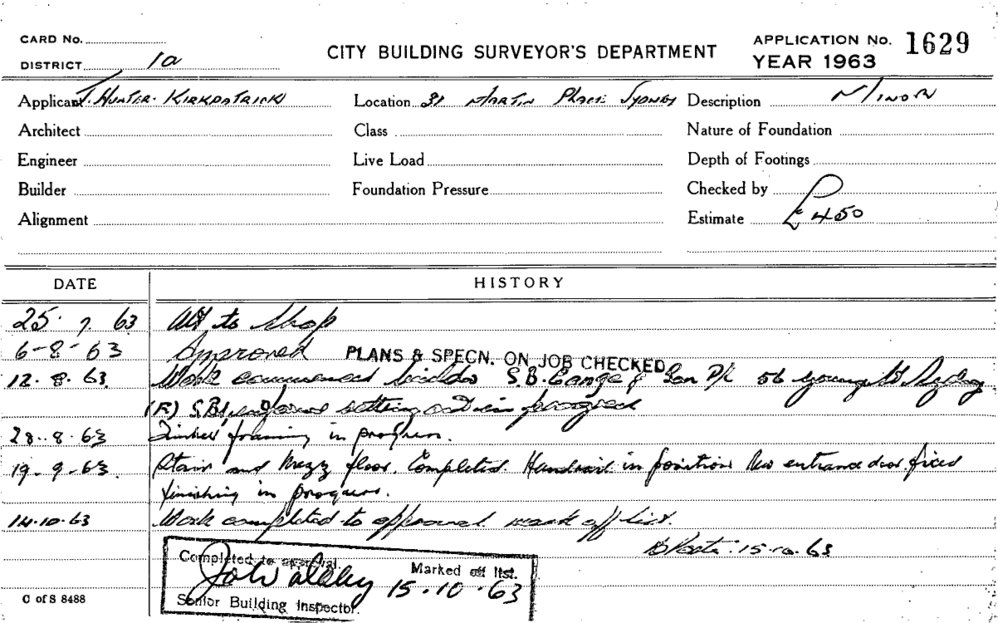 CARD No.
DISTRICT 1a
CITY BUILDING SURVEYOR'S DEPARTMENT
APPLICATION No. 1629
YEAR 1963
Applicant J. Hunter Kirkpatrick Location 31 Martin Place Sydney Description Minor
Architect Class Nature of Foundation
Engineer Live Load Depth of Footings
Builder Foundation Pressure Checked by
Alignment Estimate £450
DATE HISTORY
25. 7. 63 Alt to Shop
6-8-63 Approved PLANS & SPECN. ON JOB CHECKED
12. 8. 63 Work commenced builder S.B. & Son P/L 56 Young St Sydney
(R) setting out in progress
28.. 8. 63 Timber framing in progress.
19. 9. 63 Stair and Mezz floor. Completed. Handrail in position New entrance door fixed
finishing in progress.
14.10.63 Work completed to approval mark off list.
15.10.63
Completed to approval. Marked off list.
15.10.63
Senior Building Inspector.
C of S 8488